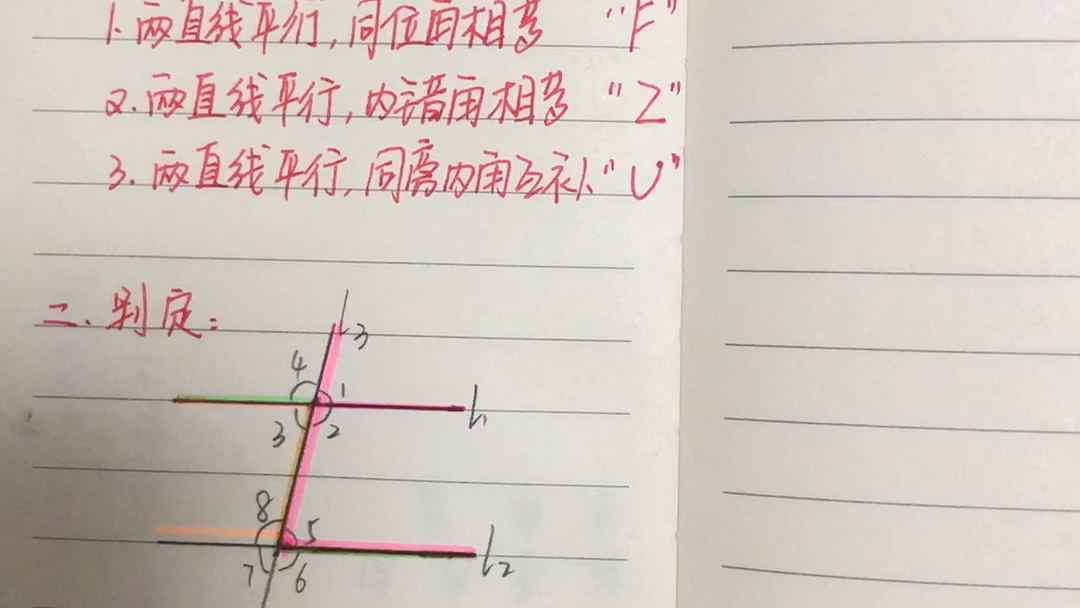 1.两直线平行,同位角相等 "F"
2.两直线平行,内错角相等 "Z"
3.两直线平行,同旁内角互补"U"
二.判定:
l3
4 1
l1
3 2
8 5
l2
7 6